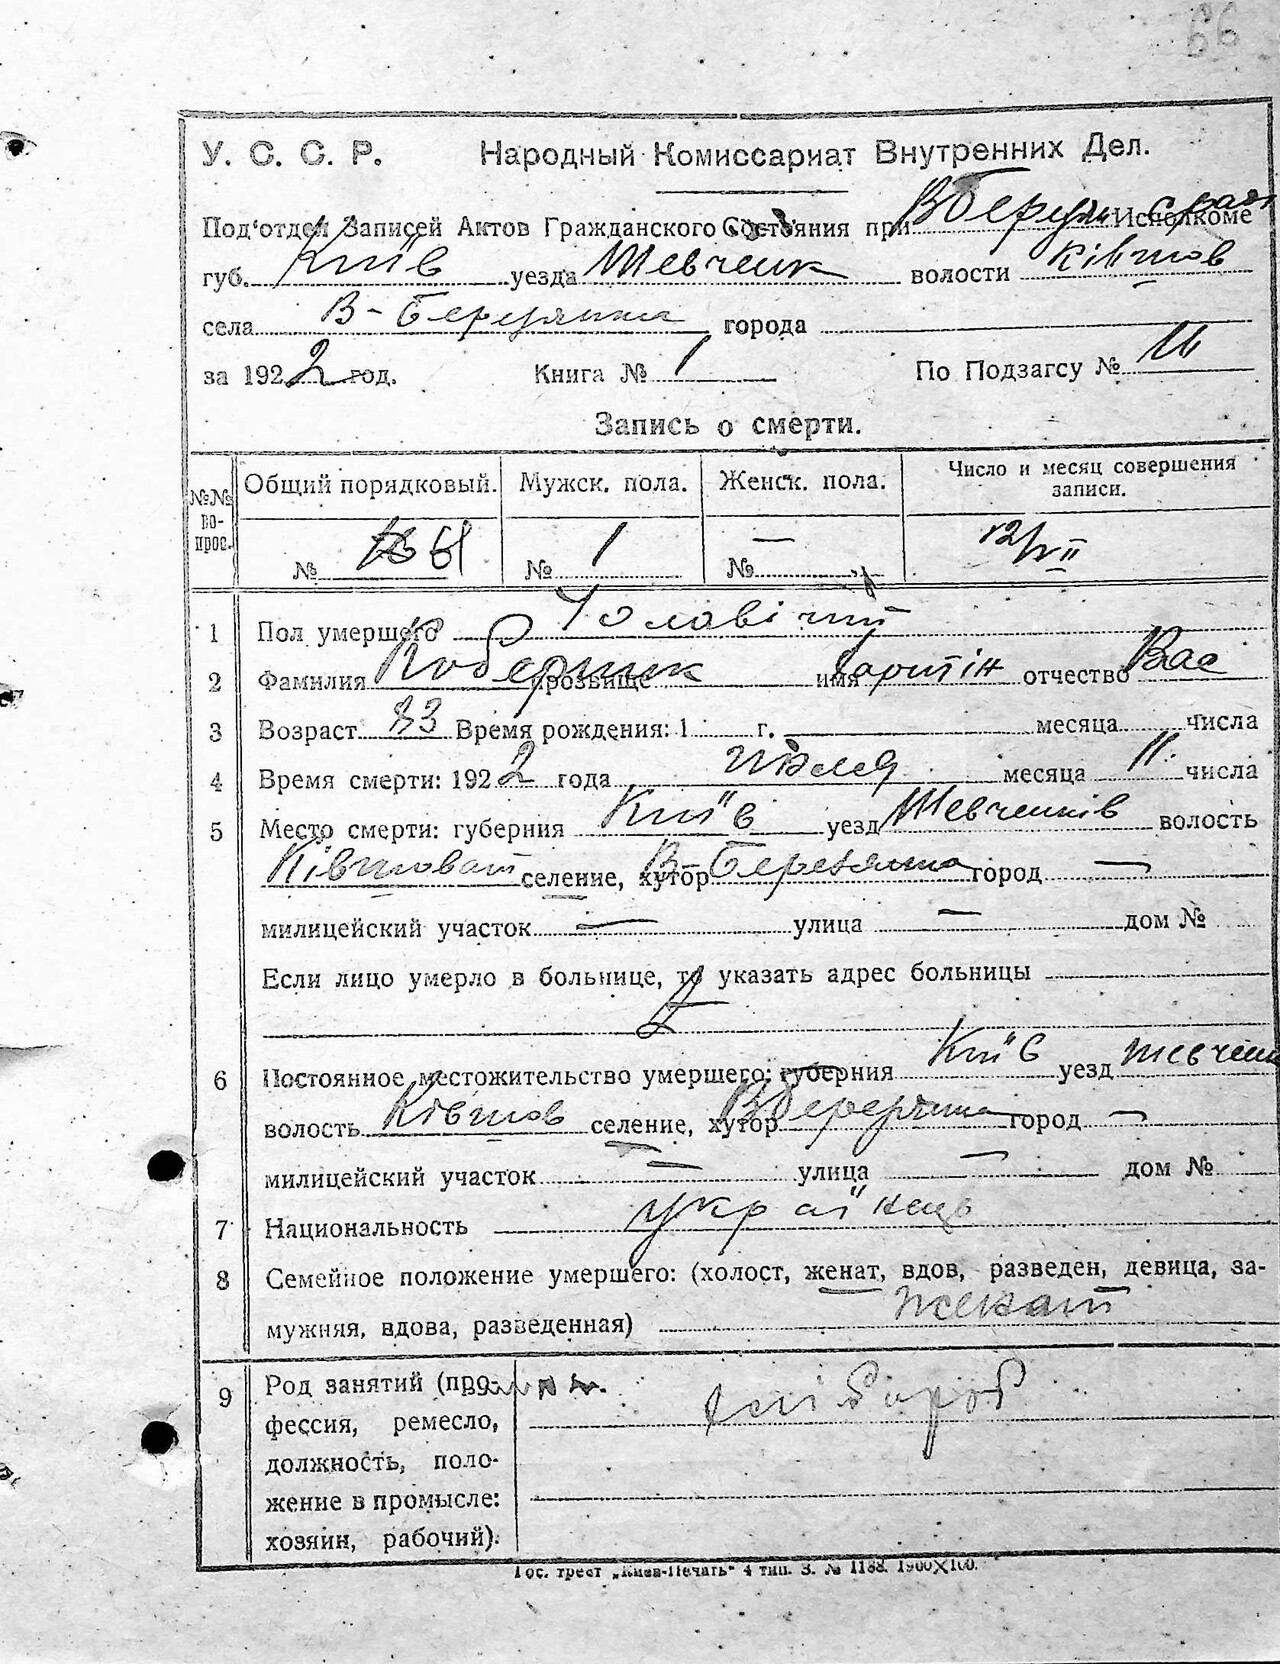 66
У. С. С. Р. Народный Комиссариат Внутренних Дел.
Под'отдел Записей Актов Гражданского Состояния при Исполкоме
губ. Київ уезда Шевченк волости Ківшов
села В-Березянка города
за 1922 год. Книга № 1 По Подзагсу №
Запись о смерти.
№№ вопрос. Общий порядковый. Мужск. пола. Женск. пола. Число и месяц совершения записи.
№ 61 № 1 № — 12/VII
1 Пол умершего Чоловічий
2 Фамилия прозвище имя отчество Вас
3 Возраст 83 Время рождения: 1 г. месяца числа
4 Время смерти: 1922 года июля месяца 11 числа
5 Место смерти: губерния Київ уезд Шевченків волость
Ківшоват селение, хутор В-Березянка город —
милицейский участок — улица — дом №
Если лицо умерло в больнице, то указать адрес больницы
6 Постоянное местожительство умершего: губерния Київ уезд Шевченк
волость Ківшов селение, хутор В Березянка город —
милицейский участок — улица — дом №
7 Национальность українець
8 Семейное положение умершего: (холост, женат, вдов, разведен, девица, за-
мужняя, вдова, разведенная) женат
9 Род занятий (про-
фессия, ремесло, хлібороб
должность, поло-
жение в промысле:
хозяин, рабочий).
Гос. трест „Киев-Печать“ 4 тип. З. № 1188. 1900X100.